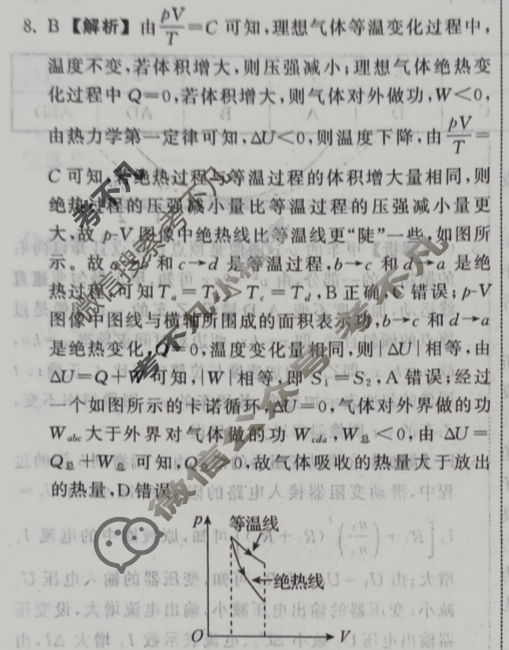 8. B 【解析】由pV/T=C 可知,理想气体等温变化过程中,
温度不变,若体积增大,则压强减小;理想气体绝热变
化过程中 Q=0,若体积增大,则气体对外做功,W<0,
由热力学第一定律可知,ΔU<0,则温度下降,由pV/T=
C 可知,若绝热过程与等温过程的体积增大量相同,则
绝热过程的压强减小量比等温过程的压强减小量更
大,故 p-V 图像中绝热线比等温线更“陡”一些,如图所
示,故 a→b 和 c→d 是等温过程,b→c 和 d→a 是绝
热过程,可知 Ta=Tb>Tc=Td,B 正确,C 错误;p-V
图像中图线与横轴所围成的面积表示功,b→c 和 d→a
是绝热变化,Q=0,温度变化量相同,则|ΔU|相等,由
ΔU=Q+W 可知,|W|相等,即 S1=S2,A 错误;经过
一个如图所示的卡诺循环,ΔU=0,气体对外界做的功
Wabc大于外界对气体做的功 Wcda,W总<0,由 ΔU=
Q总+W总 可知,Q总>0,故气体吸收的热量大于放出
的热量,D 错误
p
等温线
绝热线
O
V
考不凡
微信搜索考不凡
考不凡小
微信公众号 考不凡